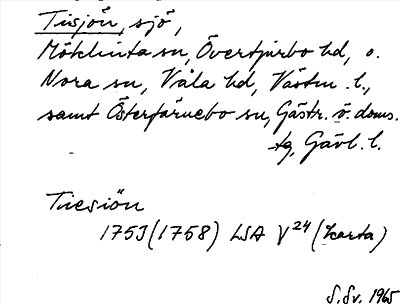 Tiisjön, sjö,
Möklinta sn, Övertjurbo hd, o.
Nora sn, Våla hd, Västm. l.,
samt Österfärnebo sn, Gästr. ö. doms.
tg, Gävl. l.
Tiesiön
1753 (1758) LSA V24 (karta)
S. Sv. 1965